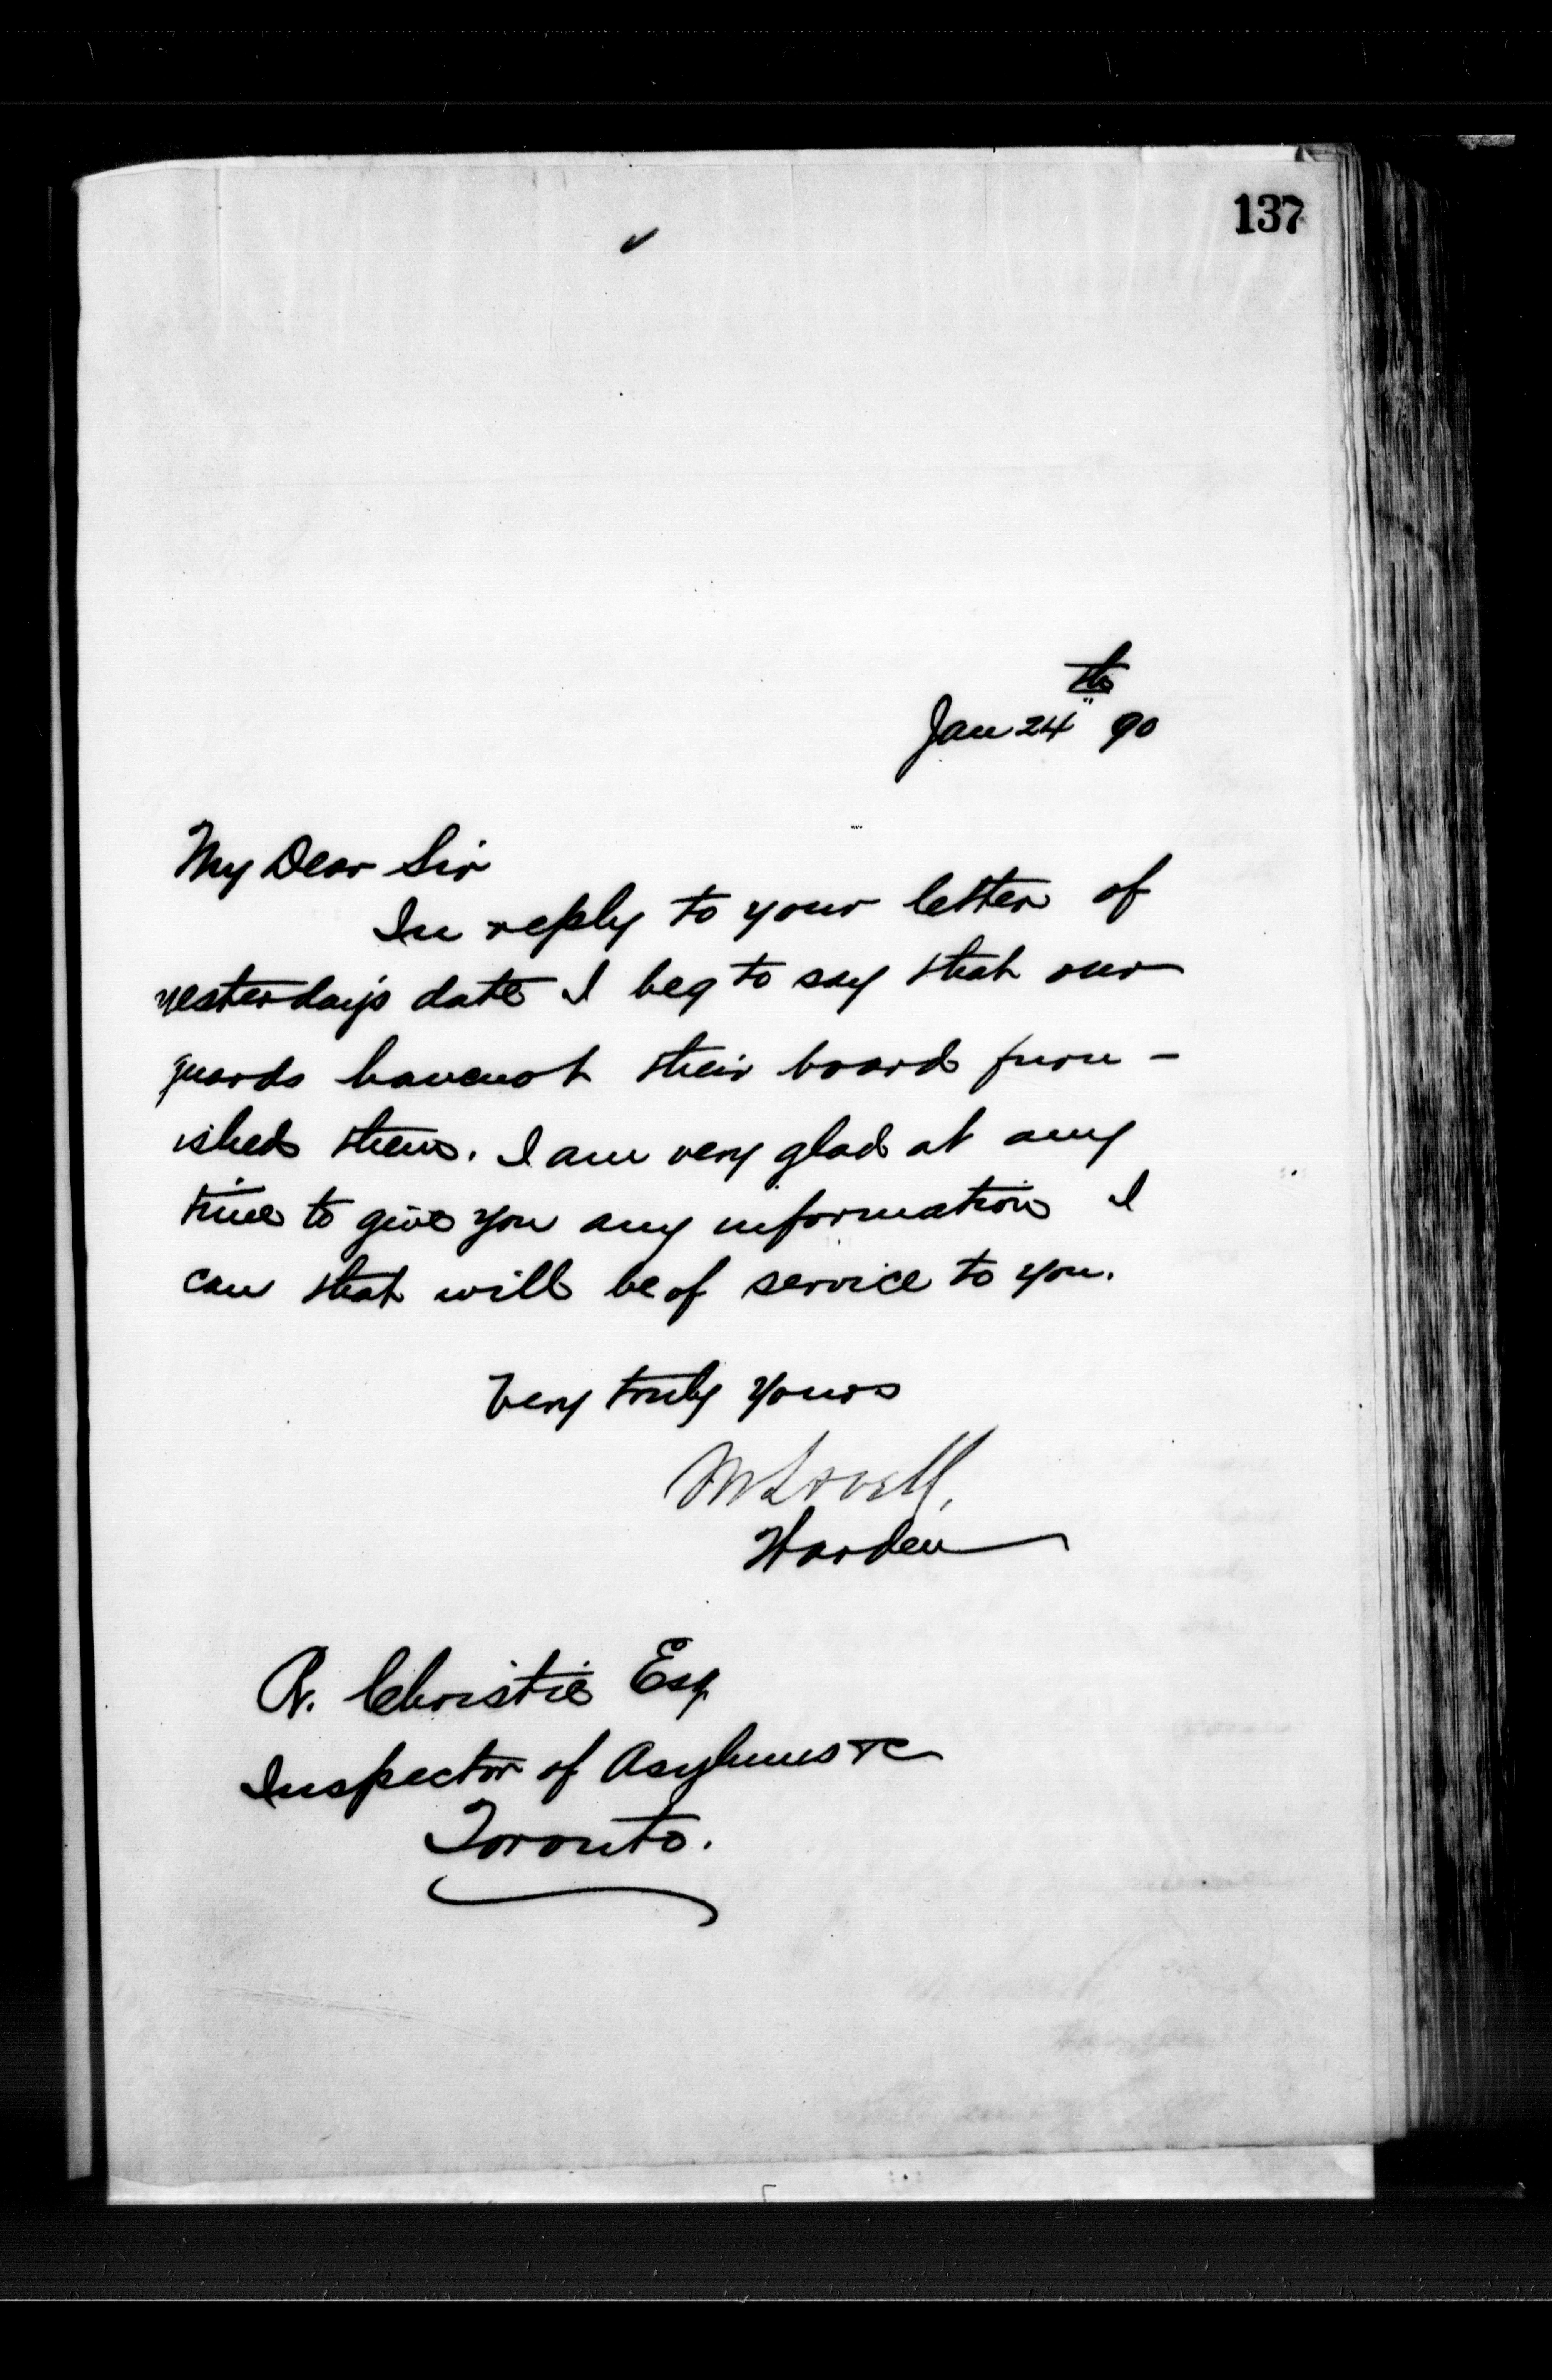 137
Jan 24th 90
My Dear Sir
In reply to your letter of
yesterday's date I beg to say that our
guards have not their board furn-
ished them. I am very glad at any
time to give you any information I
can that will be of service to you.
Very truly yours
M Lavell,
Warden
R. Christie Esq
Inspector of Asylums &c
Toronto.